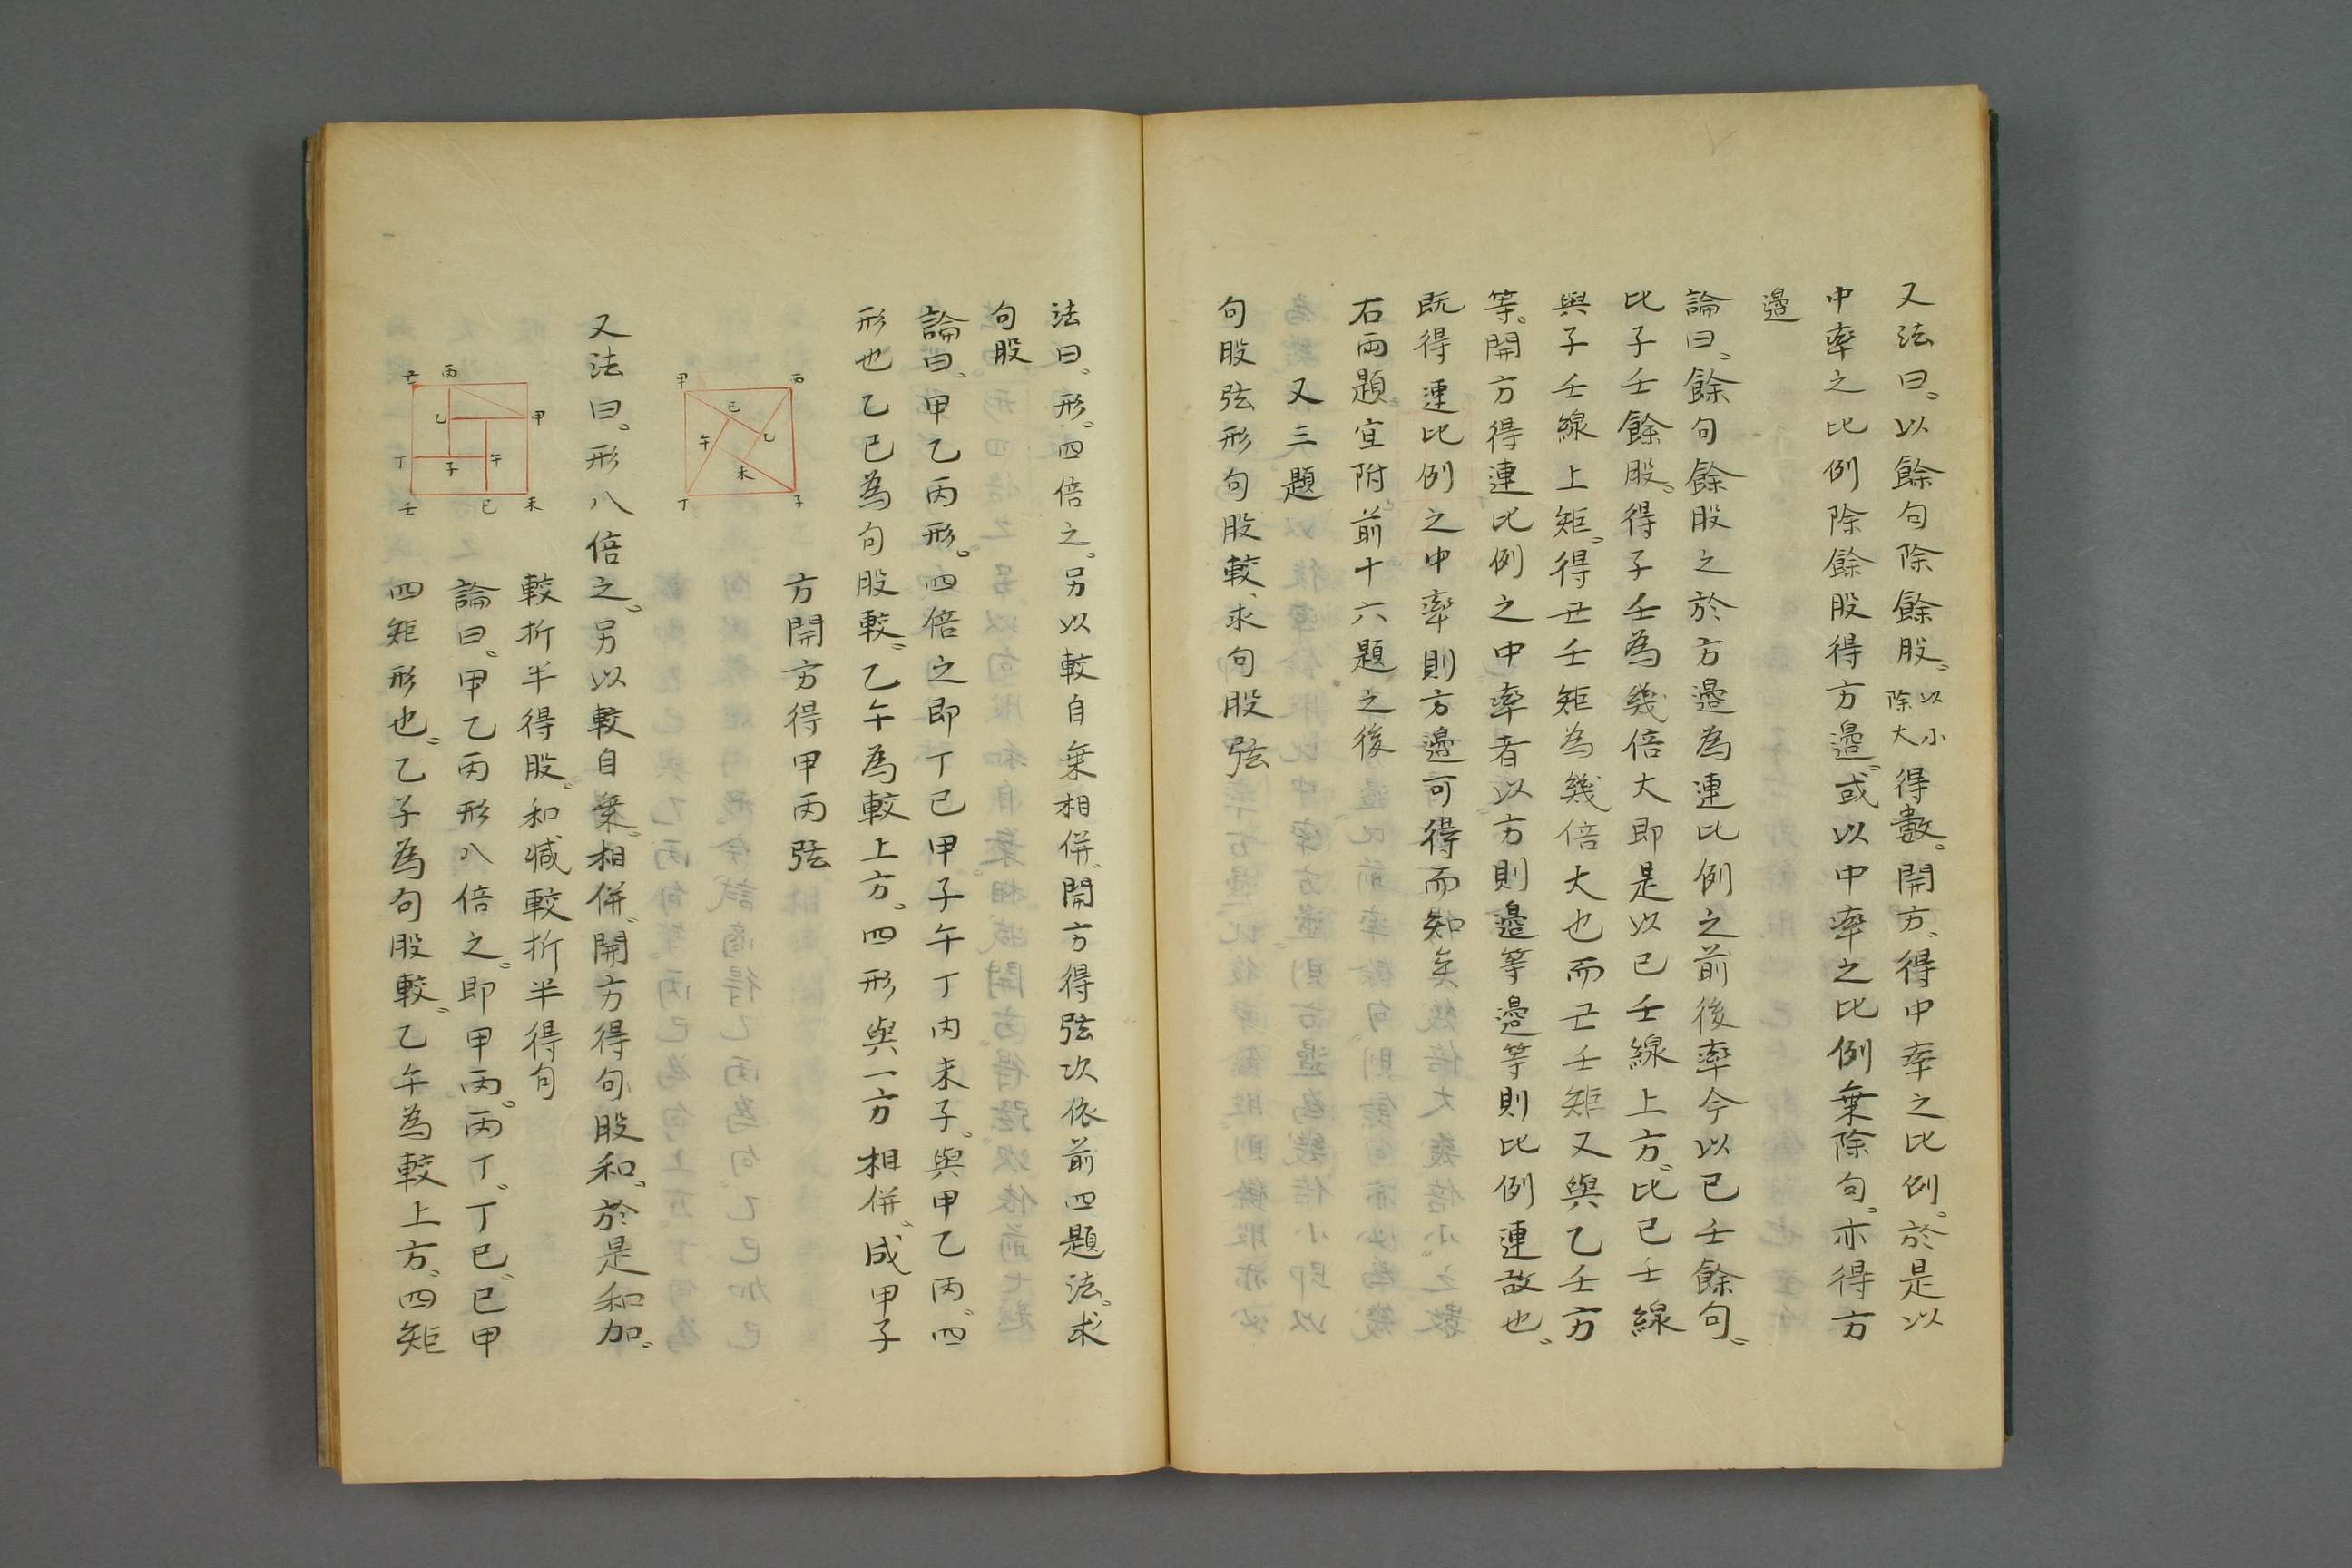 又法曰。以餘句除餘股。以小除大得數。開方。得中率之比例。於是以
中率之比例除餘股得方邊。或以中率之比例乗除句。亦得方
邊
論曰。餘句餘股之於方邊為連比例之前後率今以己壬餘句。
比子壬餘股。得子壬為幾倍大即是以己壬線上方。比己壬線
與子壬線上矩。得丑壬矩為幾倍大也而丑壬矩又與乙壬方
等。開方得連比例之中率者以方則邊等邊等則比例連故也。
既得連比例之中率則方邊可得而知矣
右兩題宜附前十六題之後
又三題
句股弦形句股較、求句股弦
法曰、形。四倍之。另以較自乗相併。開方得弦次依前四題法。求
句股
論曰。甲乙丙形。四倍之即丁己甲子午丁丙未子。與甲乙丙。四
形也乙己為句股較。乙午為較上方。四形與一方相併、成甲子
方開方得甲丙弦
甲
丙
己
乙
午
未
丁
子
又法曰。形八倍之。另以較自乗。相併。開方得句股和。於是和加。
較折半得股。和減較折半得句
論曰。甲乙丙形八倍之。即甲丙。丙丁。丁己。己甲
四矩形也。乙子為句股較。乙午為較上方。四矩
丙
乙
甲
丁
子
午
壬
己
未